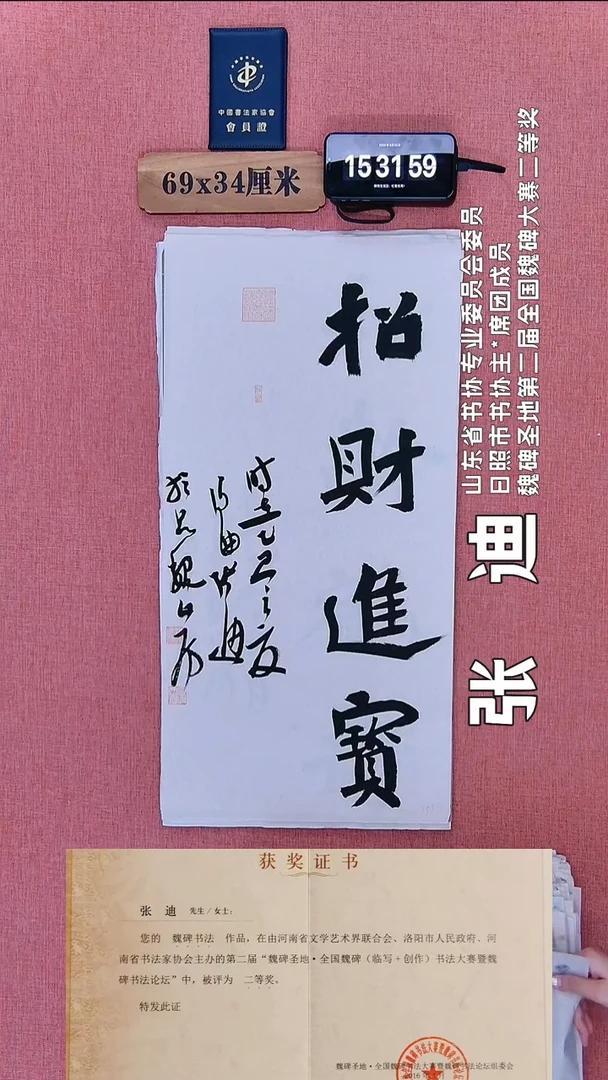 中國書法家協會
會員證
69x34厘米
15 31 59
山东省书协专业委员会委员
日照市书协主*席团成员
魏碑圣地第二届全国魏碑大赛二等奖
张 迪
招財進寶
获奖证书
张 迪 先生/女士：
您的 魏碑书法 作品，在由河南省文学艺术界联合会、洛阳市人民政府、河
南省书法家协会主办的第二届“魏碑圣地·全国魏碑（临写+创作）书法大赛暨魏
碑书法论坛”中，被评为 二等奖。
特发此证
魏碑圣地·全国魏碑书法大赛暨魏碑书法论坛组委会